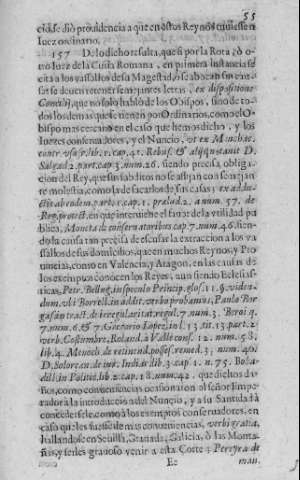 55
cio, se diò prouidencia a que en estos Reynos tuuiesse n
Iuez ordinario.
157 De lo dicho resulta, que si por la Rota, ò o-
tro Iuez de la Curia Romana, en primera instancia se
cita a los vassallos de su Magestad, ò se abocan sus cau-
sas se deuen retener semejantes letras, ex dispositione
Concilij, que no solo habló de los Obispos, sino de to-
dos los demas que se tienen por Ordinarios, como el O-
bispo mas cercano en el caso que hemos dicho, y los
Iuezes conseruadores, y el Nuncio, vt ex Menchac.
contr. vsu fr. lib. 1. cap. 41. Rebuf. & alijs tenet D.
Salgad. 2. part. cap. 3. num. 26. siendo precisa obliga-
cion del Rey, que sus subditos no se aflijan con estrange-
ra molestia, como la de sacarlos de sus casas; ex adduc-
ctis ab eodem part. 1. cap. 1. prælud. 2. a num. 57. de
Reg. protect. en que interuiene el fauor de la vtilidad pu-
blica, Moneta de conseruatoribus cap. 7. num. 46. sien-
do la causa tan precisa de escusar la extraccion a los va-
ssallos de sus domicilios, que en muchos Reynos, y Pro-
uincias, como en Valencia, y Aragon, en las causas de
los exemptos conocen los Reyes, aun siendo Eclesiast-
ticas, Petr. Bellug. in speculo Princip. glos. 11. 9. viden-
dum. vbi Borrell. in addit. verbo probamus, Paulo Bor-
gas in tract. de irregularitat. regul. 7. num. 3. Beroi q.
7. num. 6. & 7. Gregorio Lopez, in l. 13. tit. 13. part. 2.
verb. Costumbre, Roland. à Valle cons. 12. num. 58.
lib. 4. Menoch. de retinend. posses. remed. 3. num. 401
D. Solorc. on. de iur. Indiar. lib. 3. cap. 1. n. 75. Boba-
dill. in Politic. lib. 2. cap. 18. num. 42. que dichos da-
ños, como conueniencias ocasionaron el señor Empe-
rador a la introduccion del Nuncio, y a su Santidad à
concederle: como à los exemptos conseruadores, en
caso que les fuesse de mas conueniencias, verbi gratia,
hallandose en Seuilla, Granada, Galicia, ò las Monta-
ñas, y serles grauoso venir a esta Corte; Pereyra de
Ee man.